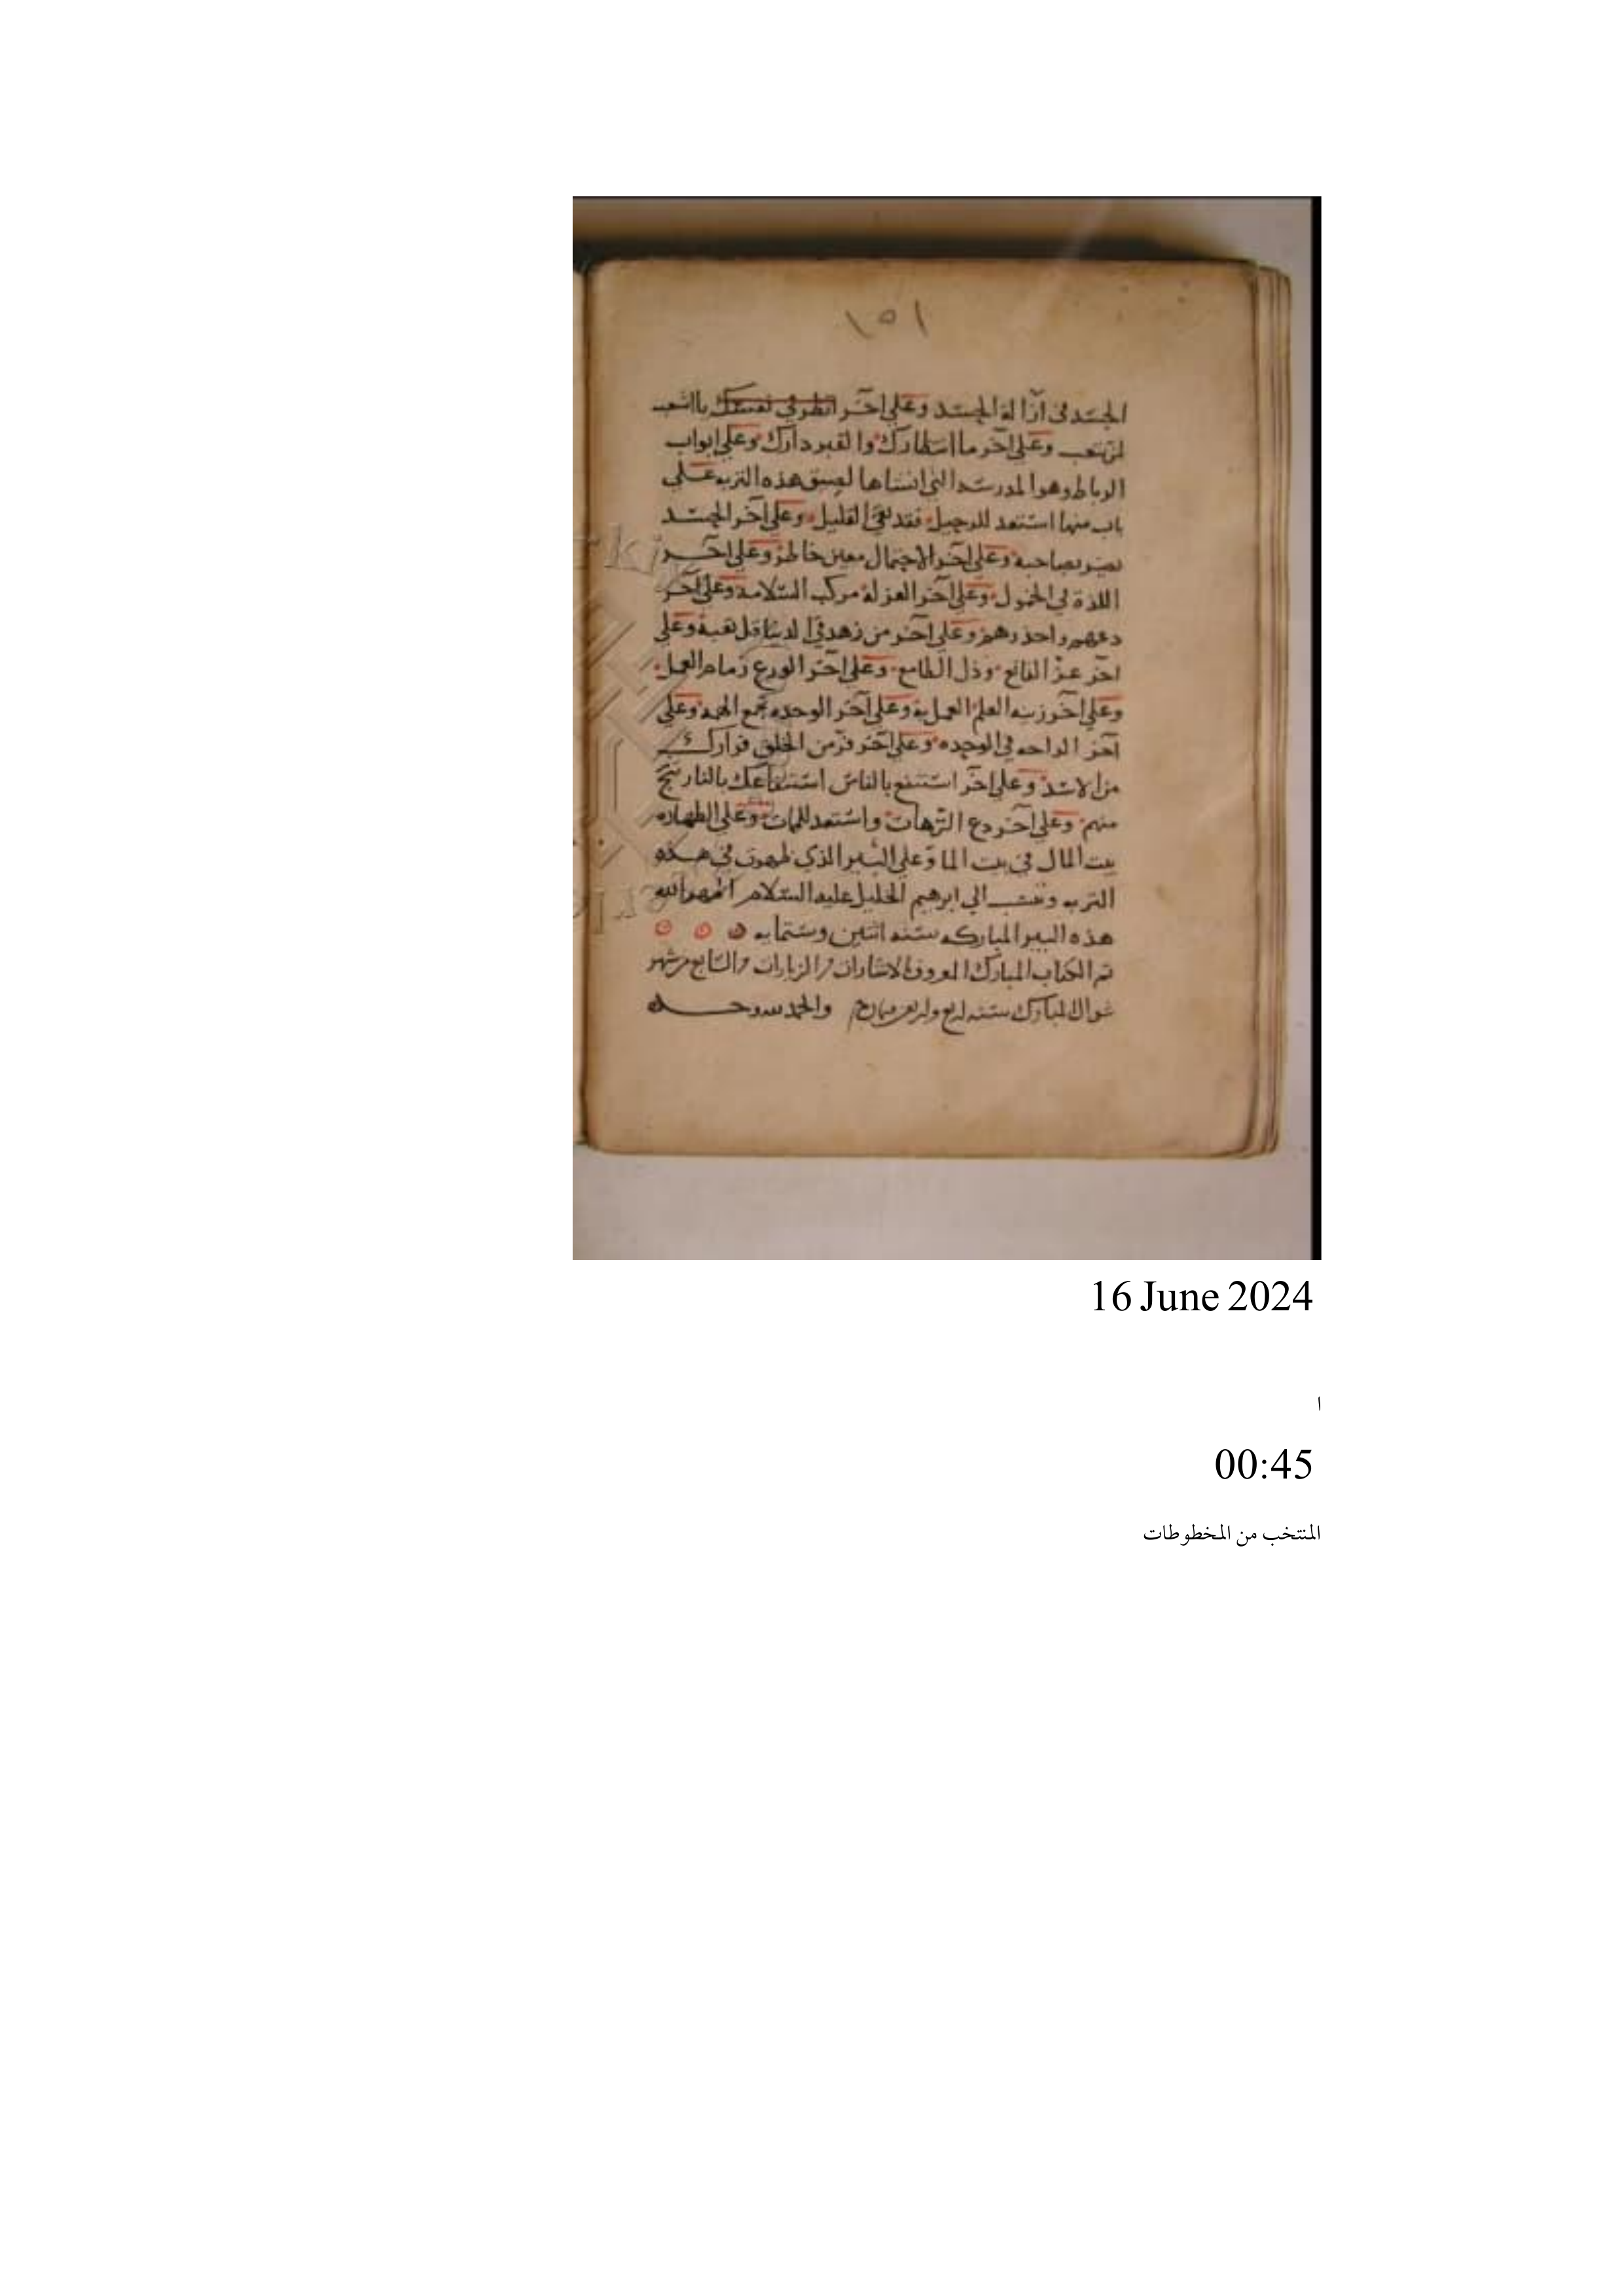 ١٥١
الجسد في ازالة الجسد وعلى آخر انظر في نفسك
وعلى آخر ما اسطارك والقبر دارك وعلى ابواب
الرباط وهو المدرسه التي انشاها لصق هذه التربه على
باب منها استعد للرحيل فقد بقي القليل وعلى آخر الجسد
يضر بصاحبه وعلى آخر الاجمال معين خاطر وعلى آخر
اللذة في الخمول وعلى آخر العزلة مركب السلامه وعلى آخر
دعهم واحذرهم وعلى آخر من زهد في الدنيا قل تعبه وعلى
آخر عز القانع وذل الطامع وعلى آخر الورع زمام العمل
وعلى آخر زينه العلم العمل به وعلى آخر الوحده تجمع الهمه وعلى
آخر الراحه في الوحده وعلى آخر فر من الخلق فرارك
من الاسد وعلى آخر استنفع بالناس استنفاعك بالنار
منهم وعلى آخر دع الترهات واستعد للممات وعلى الطهاره
بيت المال في بيت الما وعلى البير الذي ظهرت في هذه
التربه وتنسب الي ابرهيم الخليل عليه السلام اظهر الله
هذه البير المباركه سنه اثنتين وستمايه
تم الكتاب المبارك المعروف الاشارات الزيارات السابع شهر
شوال المبارك سنه اربع واربعين والحمد لله وحده
16 June 2024
ا
00:45
المنتخب من المخطوطات